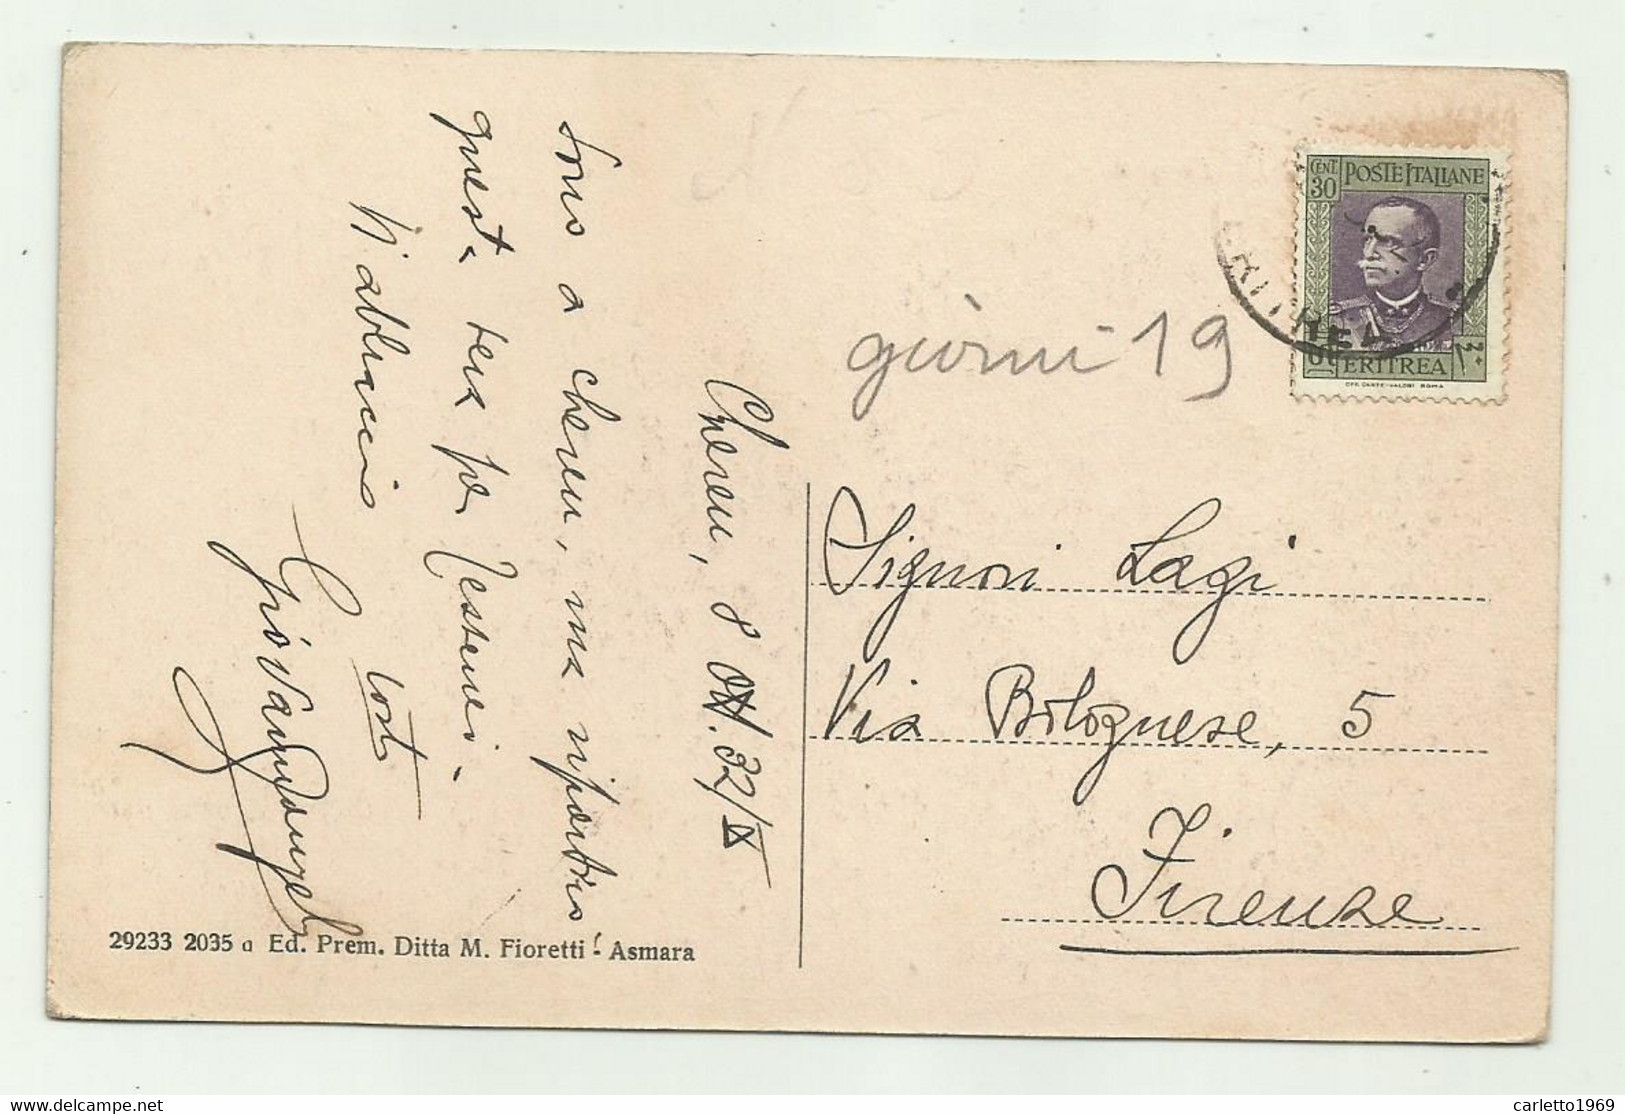 Cheren, 8 Ott. 32/X
Sono a Cheren, ma ripartirò
questa sera per Tesseneì.
Vi abbraccio
Giovannangelo
giorni 19
CENT. 30
POSTE ITALIANE
ERITREA
OFF. CARTE-VALORI ROMA
ERITREA
Signori Lagi
Via Bolognese, 5
Firenze
29233 2035 a Ed. Prem. Ditta M. Fioretti - Asmara
carletto1969